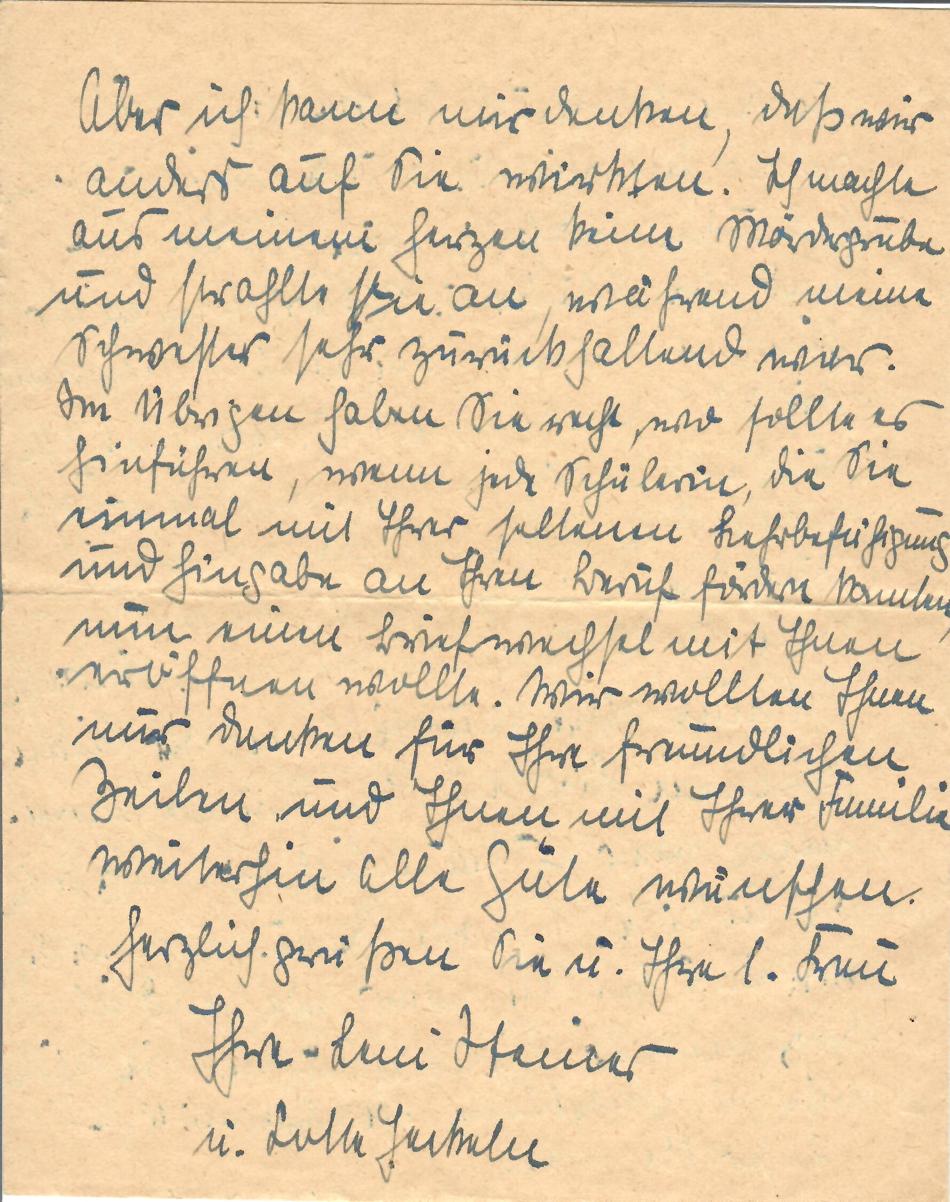 Aber ich kann mir denken, daß wir
anders auf Sie wirkten. Ich machte
aus meinem Herzen keine Mördergrube
und strahlte Sie an, während meine
Schwester sehr zurückhaltend war.
Im Übrigen haben Sie recht, wo sollte es
hinführen, wenn jede Schülerin, die Sie
einmal mit Ihrer seltenen Lehrbefähigung
und Hingabe an Ihren Beruf fördern konnten,
nun einen Briefwechsel mit Ihnen
eröffnen wollte. Wir wollten Ihnen
nur danken für Ihre freundlichen
Zeilen und Ihnen mit Ihrer Familie
weiterhin alle Güte wünschen.
Herzlich grüßen Sie u. Ihre l. Frau
Ihre Leni Steiner
u. Lotte